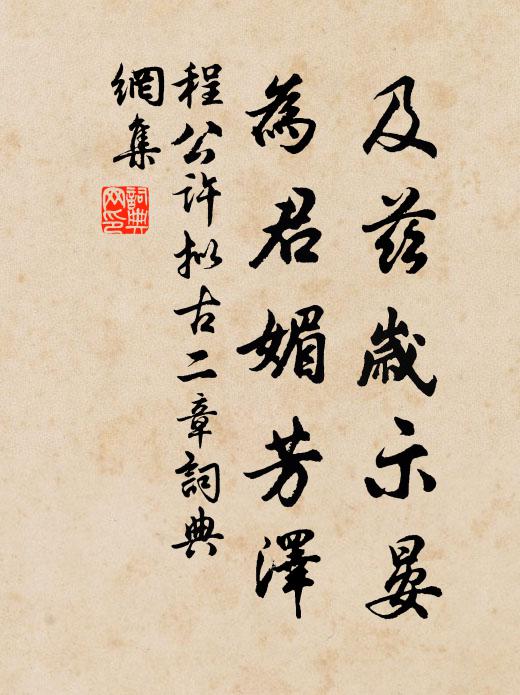 及茲歲示晏
為君媚芳澤
程公許拟古二章詞典
網集
詞典網印